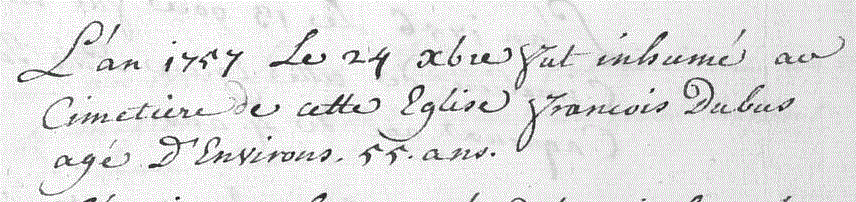 L'an 1757 Le 24 xbre fut inhumé au
Cimetiere de cette Eglise francois Dubus
agé D'Environs. 55. ans.